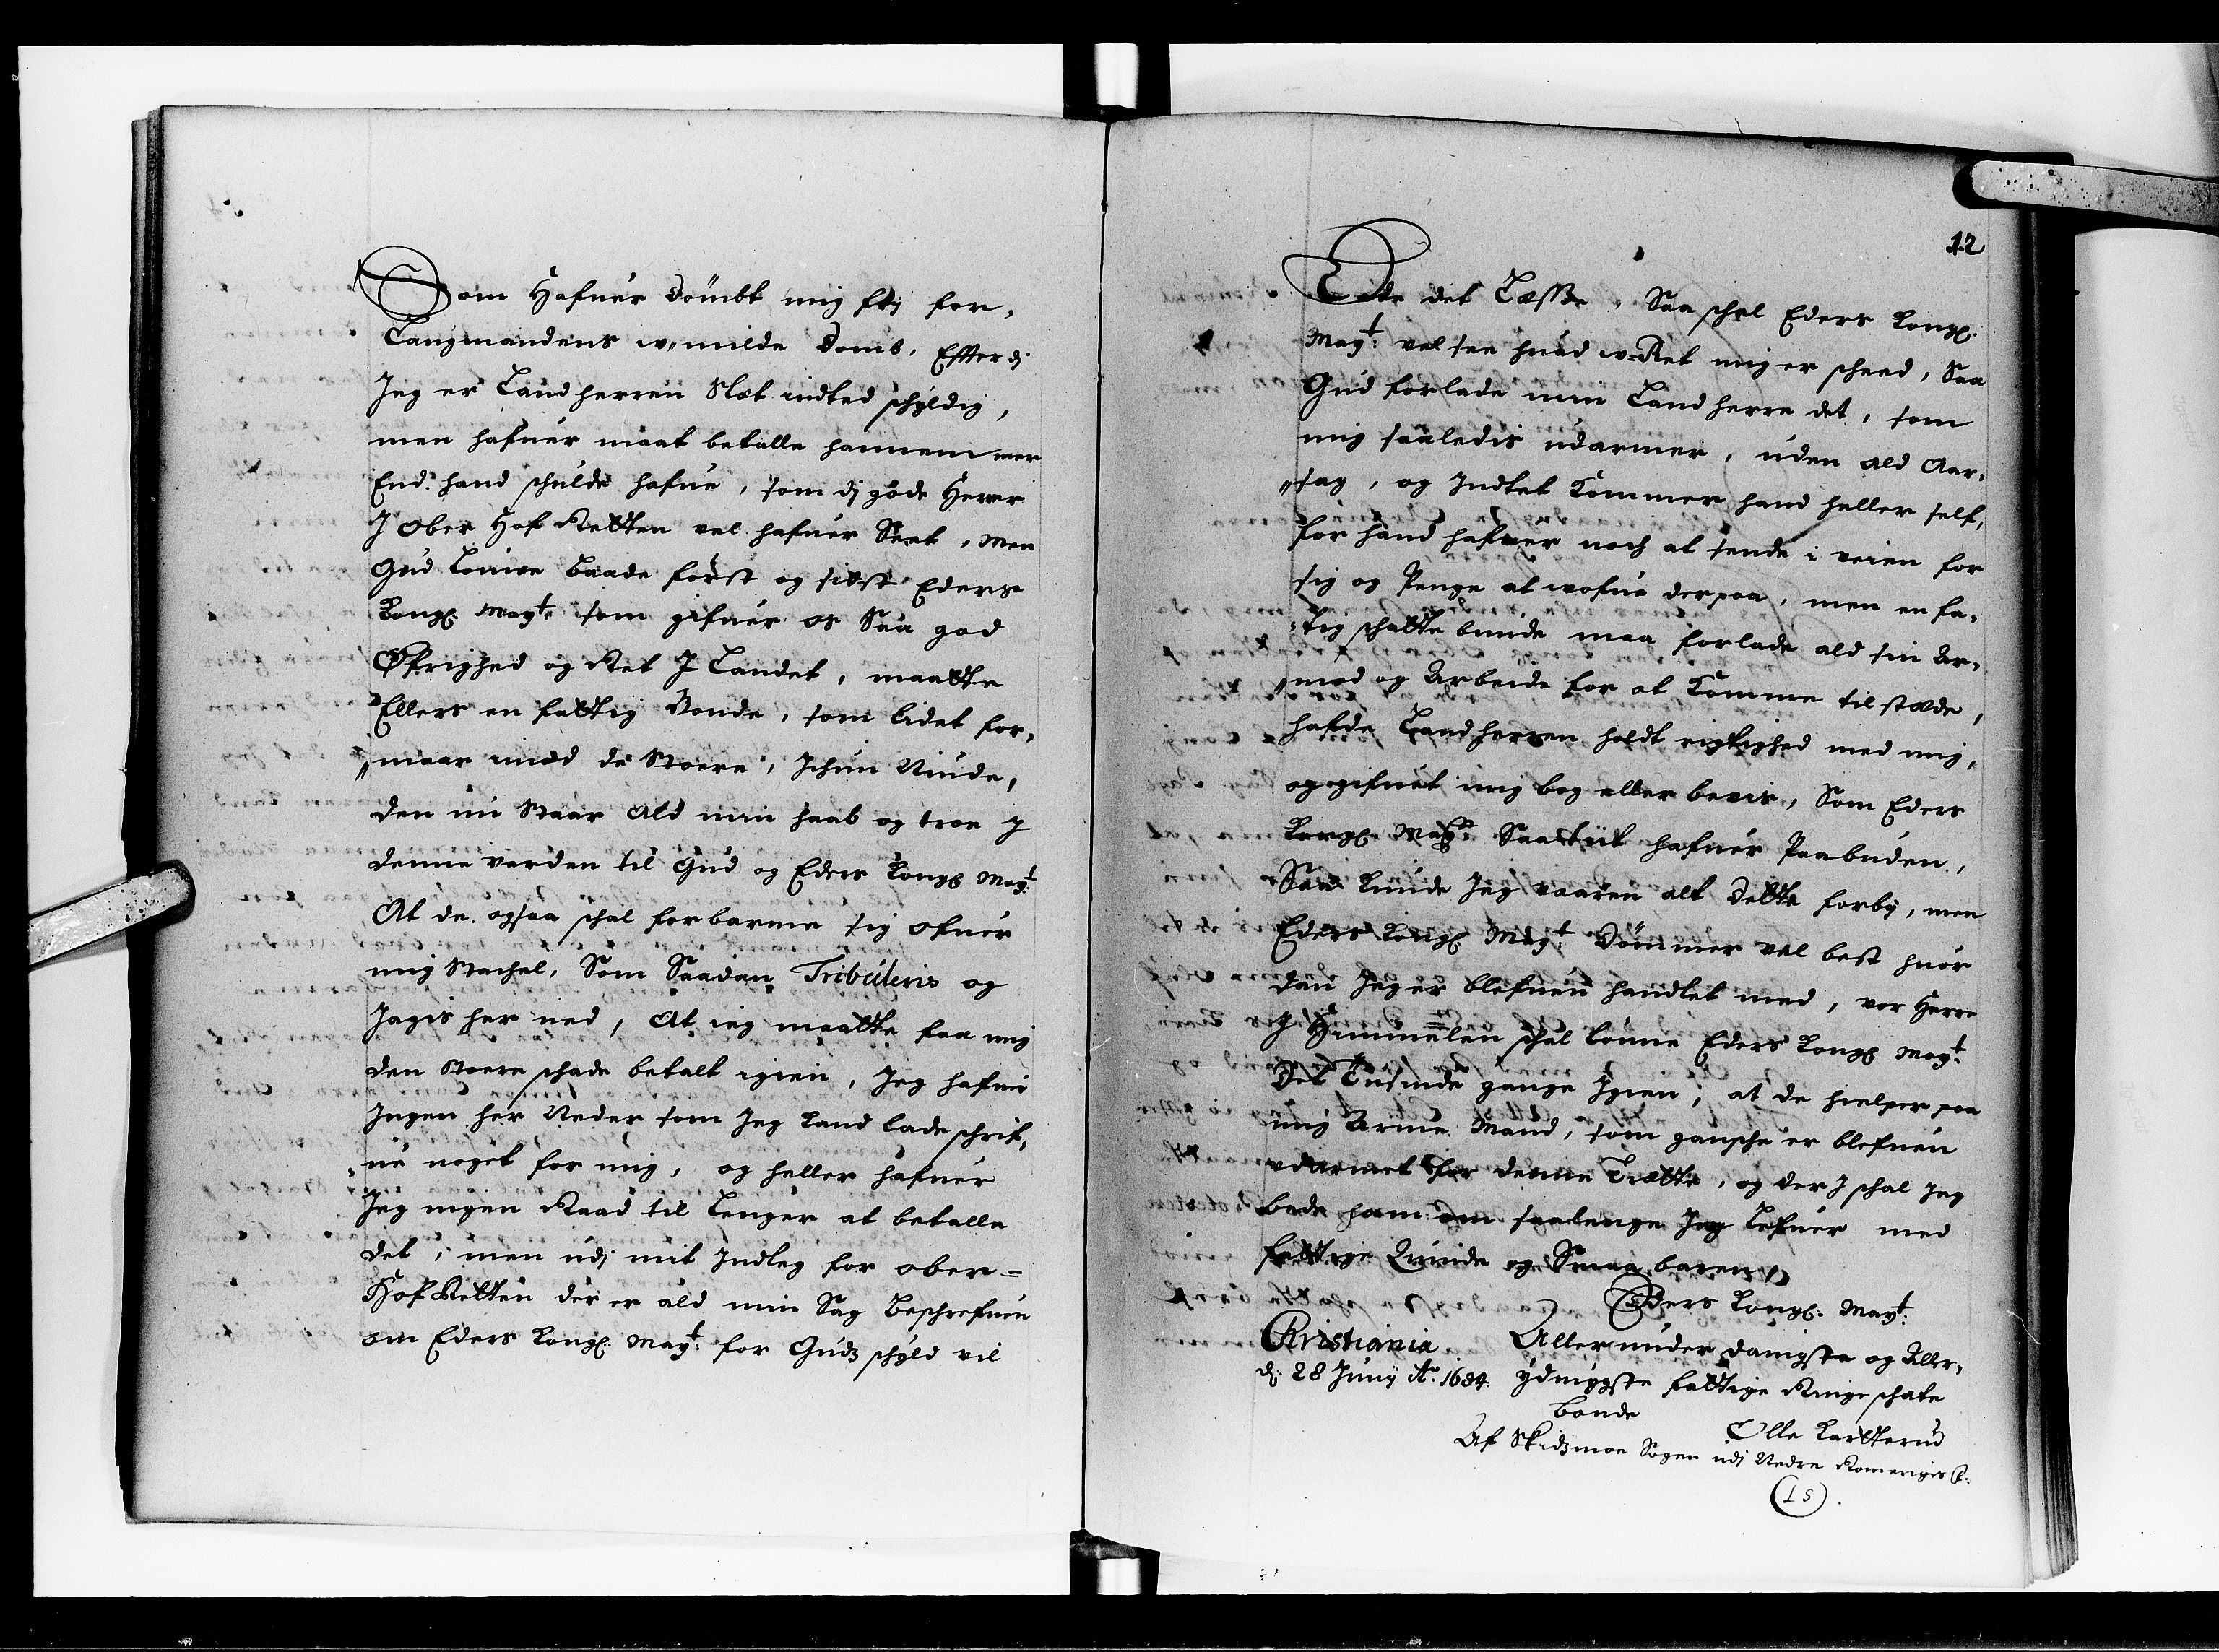 Som Hafuer dömbt mig frj for,
Laugmandens w,,milde Domb, Effterdj
Jeg er Landherren Slet indted schÿldig,
men hafuer maat betalle hannem mer
End hand schulde hafue, som dj gode Herrer
J Ober Hof Retten vel hafuer Seet, Men
Gud Lönne Baade först og sidst Eders
Kongl. Mayt. som gifuer os Saa god
Öfrighed og Ret J Landet, maatte
Ellers en fattig Bonde, som lidet for,
,,maar imod de Stoere, Jchun Vinde,
den nu Staar Ald min haab og troe J
denne verden til Gud og Eders Kongl Mayt.
At de ogsaa schal forbarme sig ofuer
mig Stachel, Som Saadan Tribuleris og
Jagis her ned, At ieg maatte faa mig
den Stoere schade betalt igien, Jeg hafuer
Jngen her Neder som Jeg Kand lade schrif,
,,ue noget for mig, og heller hafuer
Jeg ingen Raad til Lenger at betalle
det, men udj mit Jndleg for ober=
Hof Retten der er ald min Sag Beschrefuen
om Eders Kongl. Mayt. for Gudz schÿld vil
12
Lade det Læsse, Saa schal Eders Kongl.
Mayt. vel see huad w=Ret mig er scheed, Saa
Gud forlade min Landherre det, som
mig saaledis udarmer, uden ald Aar,
,,sag, og Jndtet Kommer hand heller self,
for hand hafuer noch at sende i veien for
sig og Penge at wofue derpaa, men en fa,
,,tig schatte bunde maa forlade ald sin Ar,
,,mod og Arbeide for at Komme tilstæde,
hafde Landherren holdt rigtighed med mig,
og gifuet mig bog eller bevis, Som Eders
Kongl. Mayt. Saa tiit hafuer Paabuden,
Saa Kunde Jeg vaaren alt dette forbÿ, men
Eders Kongl. Mayt. Dömmer vel best huor
dan Jeg er blefuen handlet med, vor Herre
J Himmelen schal lönne Eders Kongl Mayt.
det Tusinde gange Jgien, at de hielper paa
mig Arme Mand, som gansche er blefuen
vdarmet for denne Trætte, og der J schal Jeg
bede ham om saalenge Jeg Lefuer med
fattige Quinde og Smaa baren,
Eders Kongl. Mayt.
Christiania Allerunderdanigste og Aller,
dj. 28 Junij Ao. 1684. ÿdmÿgste fattige Ringe schate
Bonde
Olle Kartterud
Af Skidzmoe Sogen udj Nedre Romerigis f.
(LS).